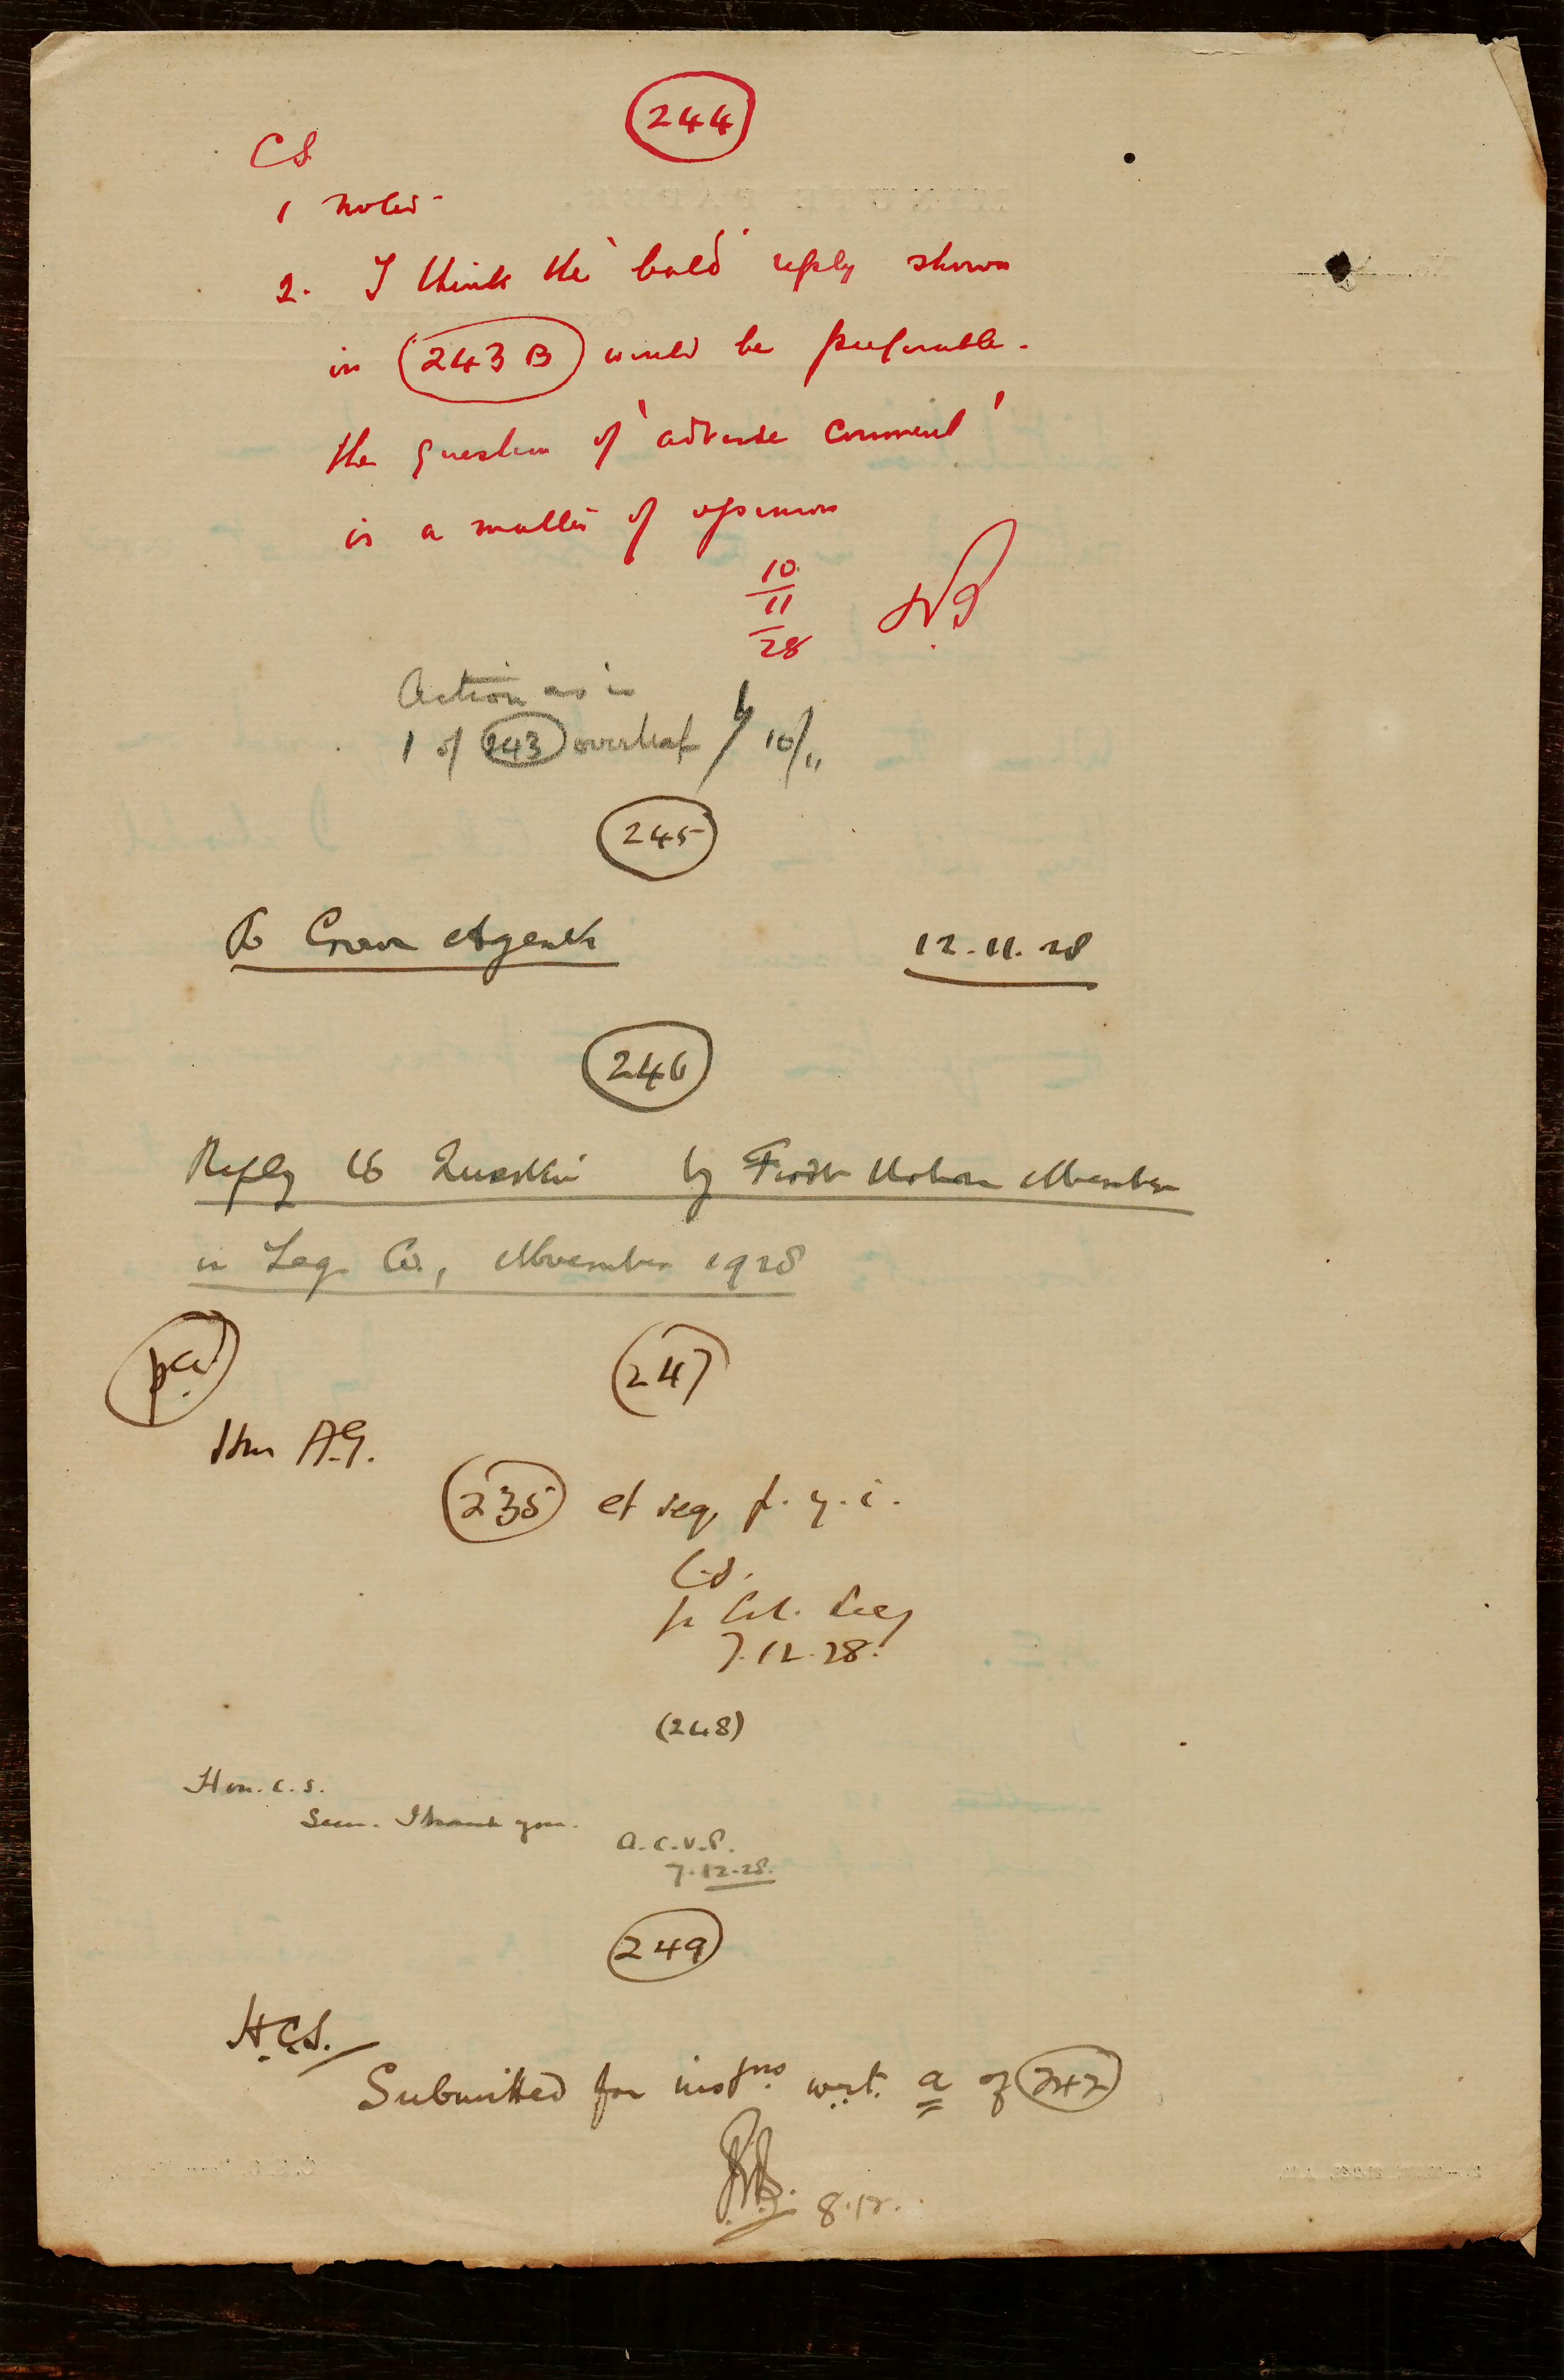 244
CS
1 Noted
2. I think the 'bald' reply shown
in 243 B would be preferable.
the question of 'adverse comment'
is a matter of opinion
10
11
28
Action as in
1 of 243 overleaf 10/11
245
To Crown Agents 12.11.28
246
Reply to Question by First Urban Member
in Leg. Co., November 1928
pa
247
Hon A.G.
235 et seq, f.y.i.
C.S.
for Col. Secy
7.12.28.
(248)
Hon. C.S.
Seen. Thank you.
A.C.V.P.
7.12.28.
249
H.C.S.
Submitted for instns w.r.t. a of 242
8.12.